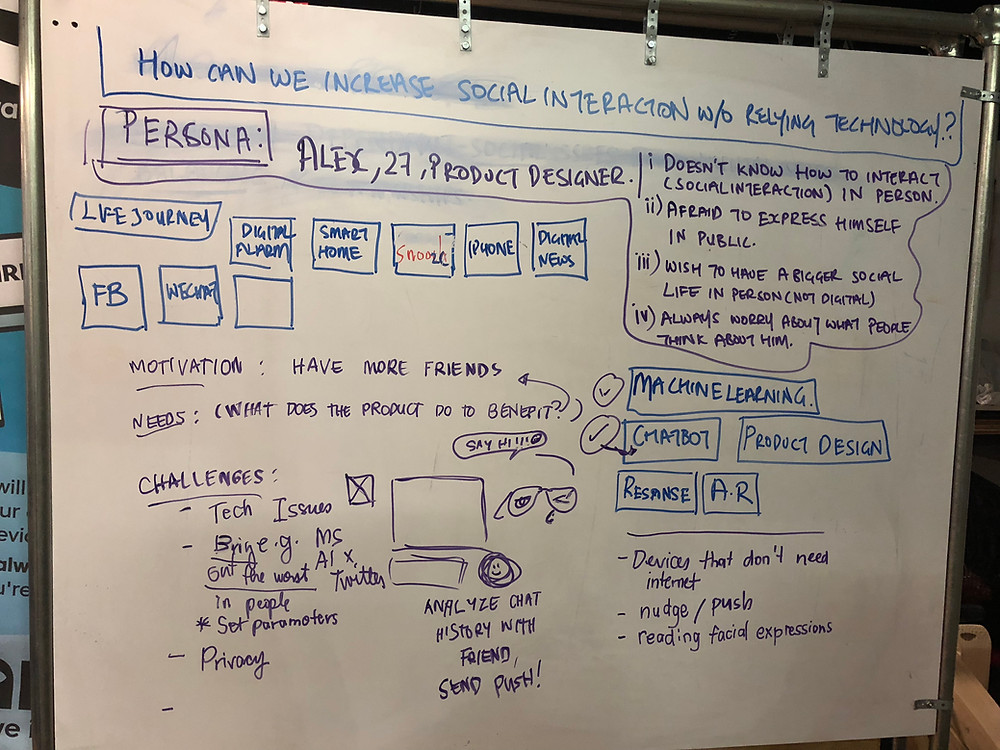 HOW CAN WE INCREASE SOCIAL INTERACTION W/O RELYING TECHNOLOGY?
PERSONA:
ALEX, 27, PRODUCT DESIGNER.
i DOESN'T KNOW HOW TO INTERACT
(SOCIAL INTERACTION) IN PERSON.
ii) AFRAID TO EXPRESS HIMSELF
IN PUBLIC.
iii) WISH TO HAVE A BIGGER SOCIAL
LIFE IN PERSON (NOT DIGITAL)
iv) ALWAYS WORRY ABOUT WHAT PEOPLE
THINK ABOUT HIM.
LIFE JOURNEY
DIGITAL
ALARM
SMART
HOME
Snooze
IPHONE
DIGITAL
NEWS
FB
WECHAT
MOTIVATION: HAVE MORE FRIENDS
NEEDS: (WHAT DOES THE PRODUCT DO TO BENEFIT?)
MACHINE LEARNING.
CHATBOT
PRODUCT DESIGN
A.R
SAY HI!!!!
CHALLENGES:
- Tech Issues
- Bring e.g. MS
out the worst AI x
Twitter
in people
* Set parameters
- Privacy
-
ANALYZE CHAT
HISTORY WITH
FRIEND,
SEND PUSH!
- Devices that don't need
internet
- nudge/push
- reading facial expressions
will
ur
evic
alw
u're
ve i